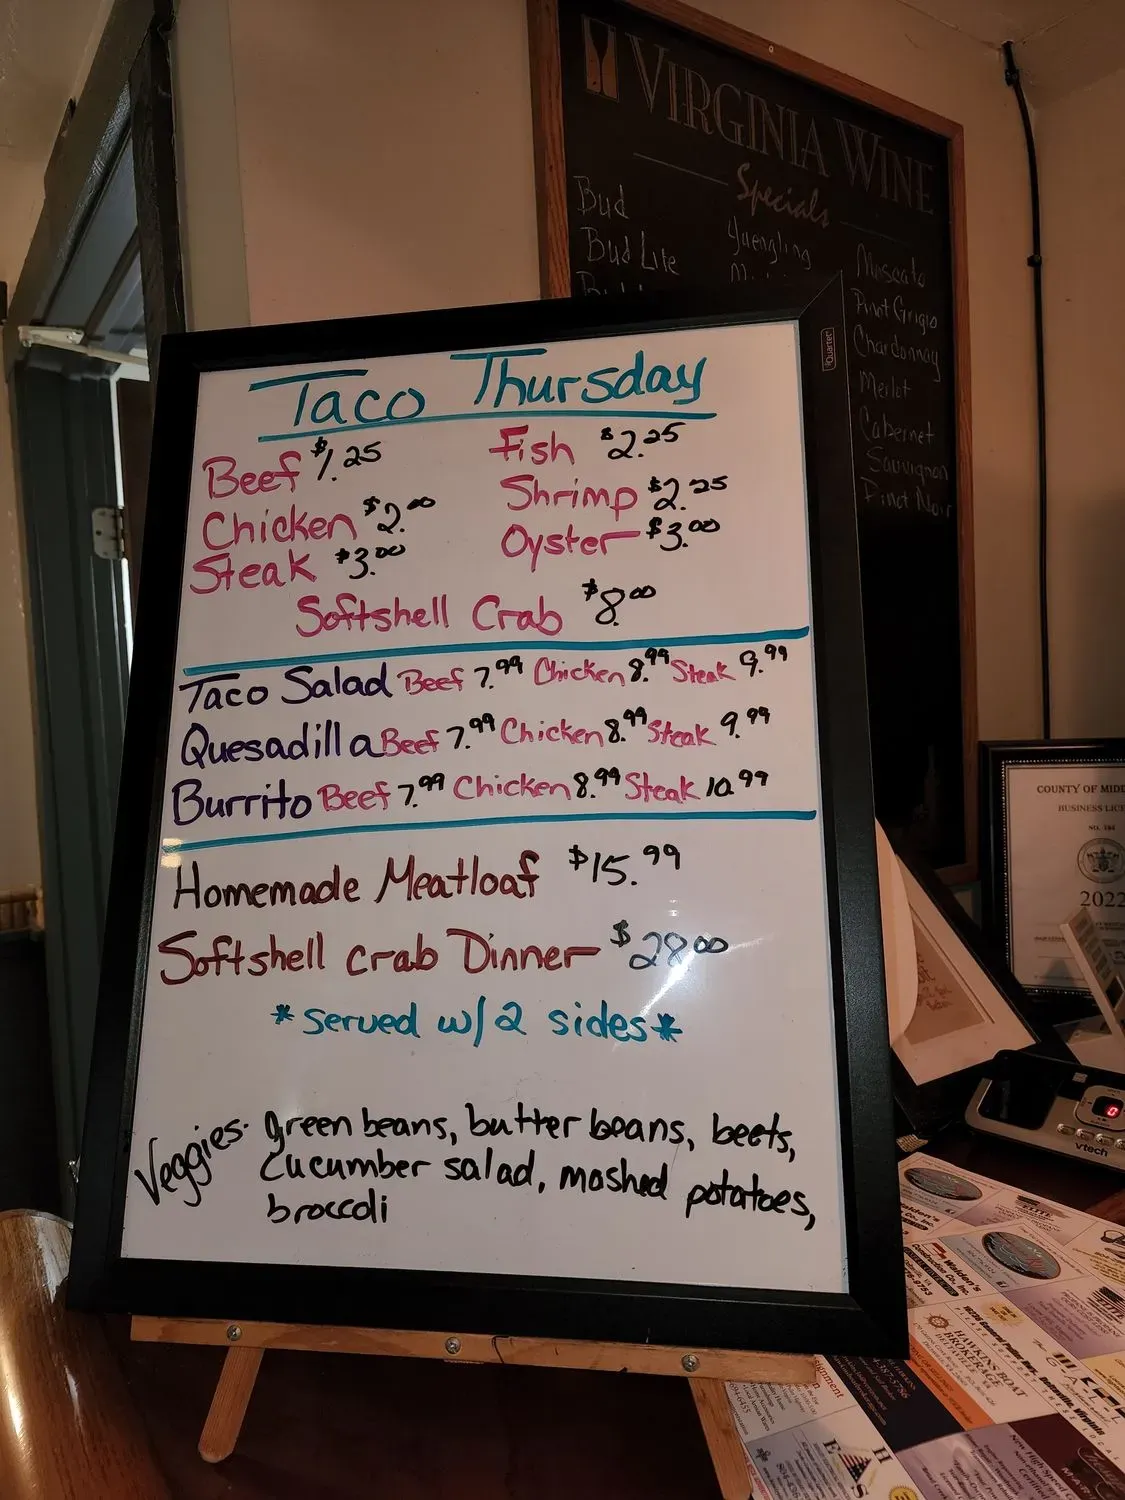 VIRGINIA WINE
Specials
Bud
Bud Lite
Yuengling
Moscato
Pinot Grigio
Chardonnay
Merlot
Cabernet
Sauvignon
Pinot Noir
Quartet
Taco Thursday
Beef $1.25 Fish $2.25
Chicken $2.00 Shrimp $2.25
Steak $3.00 Oyster $3.00
Softshell Crab $8.00
Taco Salad Beef 7.99 Chicken 8.99 Steak 9.99
Quesadilla Beef 7.99 Chicken 8.99 Steak 9.99
Burrito Beef 7.99 Chicken 8.99 Steak 10.99
Homemade Meatloaf $15.99
Softshell crab Dinner $28.00
*served w/ 2 sides*
Veggies- green beans, butter beans, beets,
cucumber salad, mashed potatoes,
broccoli
COUNTY OF MIDD
BUSINESS LICE
2022
0
vtech
Walden's
Construction Co., Inc.
HAWKINS BOAT
BROKERAGE